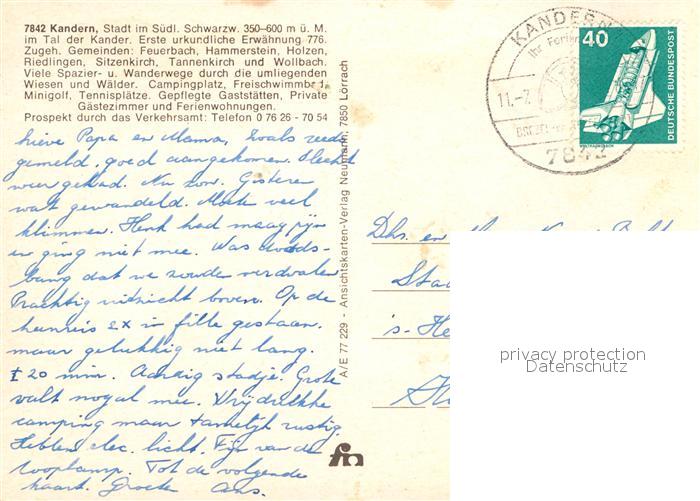 7842 Kandern, Stadt im Südl. Schwarzw. 350-600 m ü. M.
im Tal der Kander. Erste urkundliche Erwähnung 776.
Zugeh. Gemeinden: Feuerbach, Hammerstein, Holzen,
Riedlingen, Sitzenkirch, Tannenkirch und Wollbach.
Viele Spazier- u. Wanderwege durch die umliegenden
Wiesen und Wälder. Campingplatz, Freischwimmb.
Minigolf, Tennisplätze. Gepflegte Gaststätten, Private
Gästezimmer und Ferienwohnungen.
Prospekt durch das Verkehrsamt: Telefon 0 76 26 - 70 54
Lieve Papa en Mama, zoals reeds
gemeld, goed aangekomen. Slecht
weer gehad. Nu zon. Gisteren
wat gewandeld. Moest veel
klimmen. Henk had maagpijn
en ging niet mee. Was doods-
bang dat we zouden verdwalen
Prachtig uitzicht boven. Op de
heenreis 2x in file gestaan.
maar gelukkig niet lang.
± 20 min. Aardig stadje. Grote
valt nogal mee. Vrij drukke
camping maar tamelijk rustig.
Hebben elec. licht. Fijn van de
looplamp. Tot de volgende
kaart. Groeten Ans.
A/E 77 229 - Ansichtskarten-Verlag Neumann, 7850 Lörrach
KANDERN
Ihr Ferien
11.-7
7842
40
DEUTSCHE BUNDESPOST
WELTRAUMLABOR
Dhr. en
's-He
privacy protection
Datenschutz